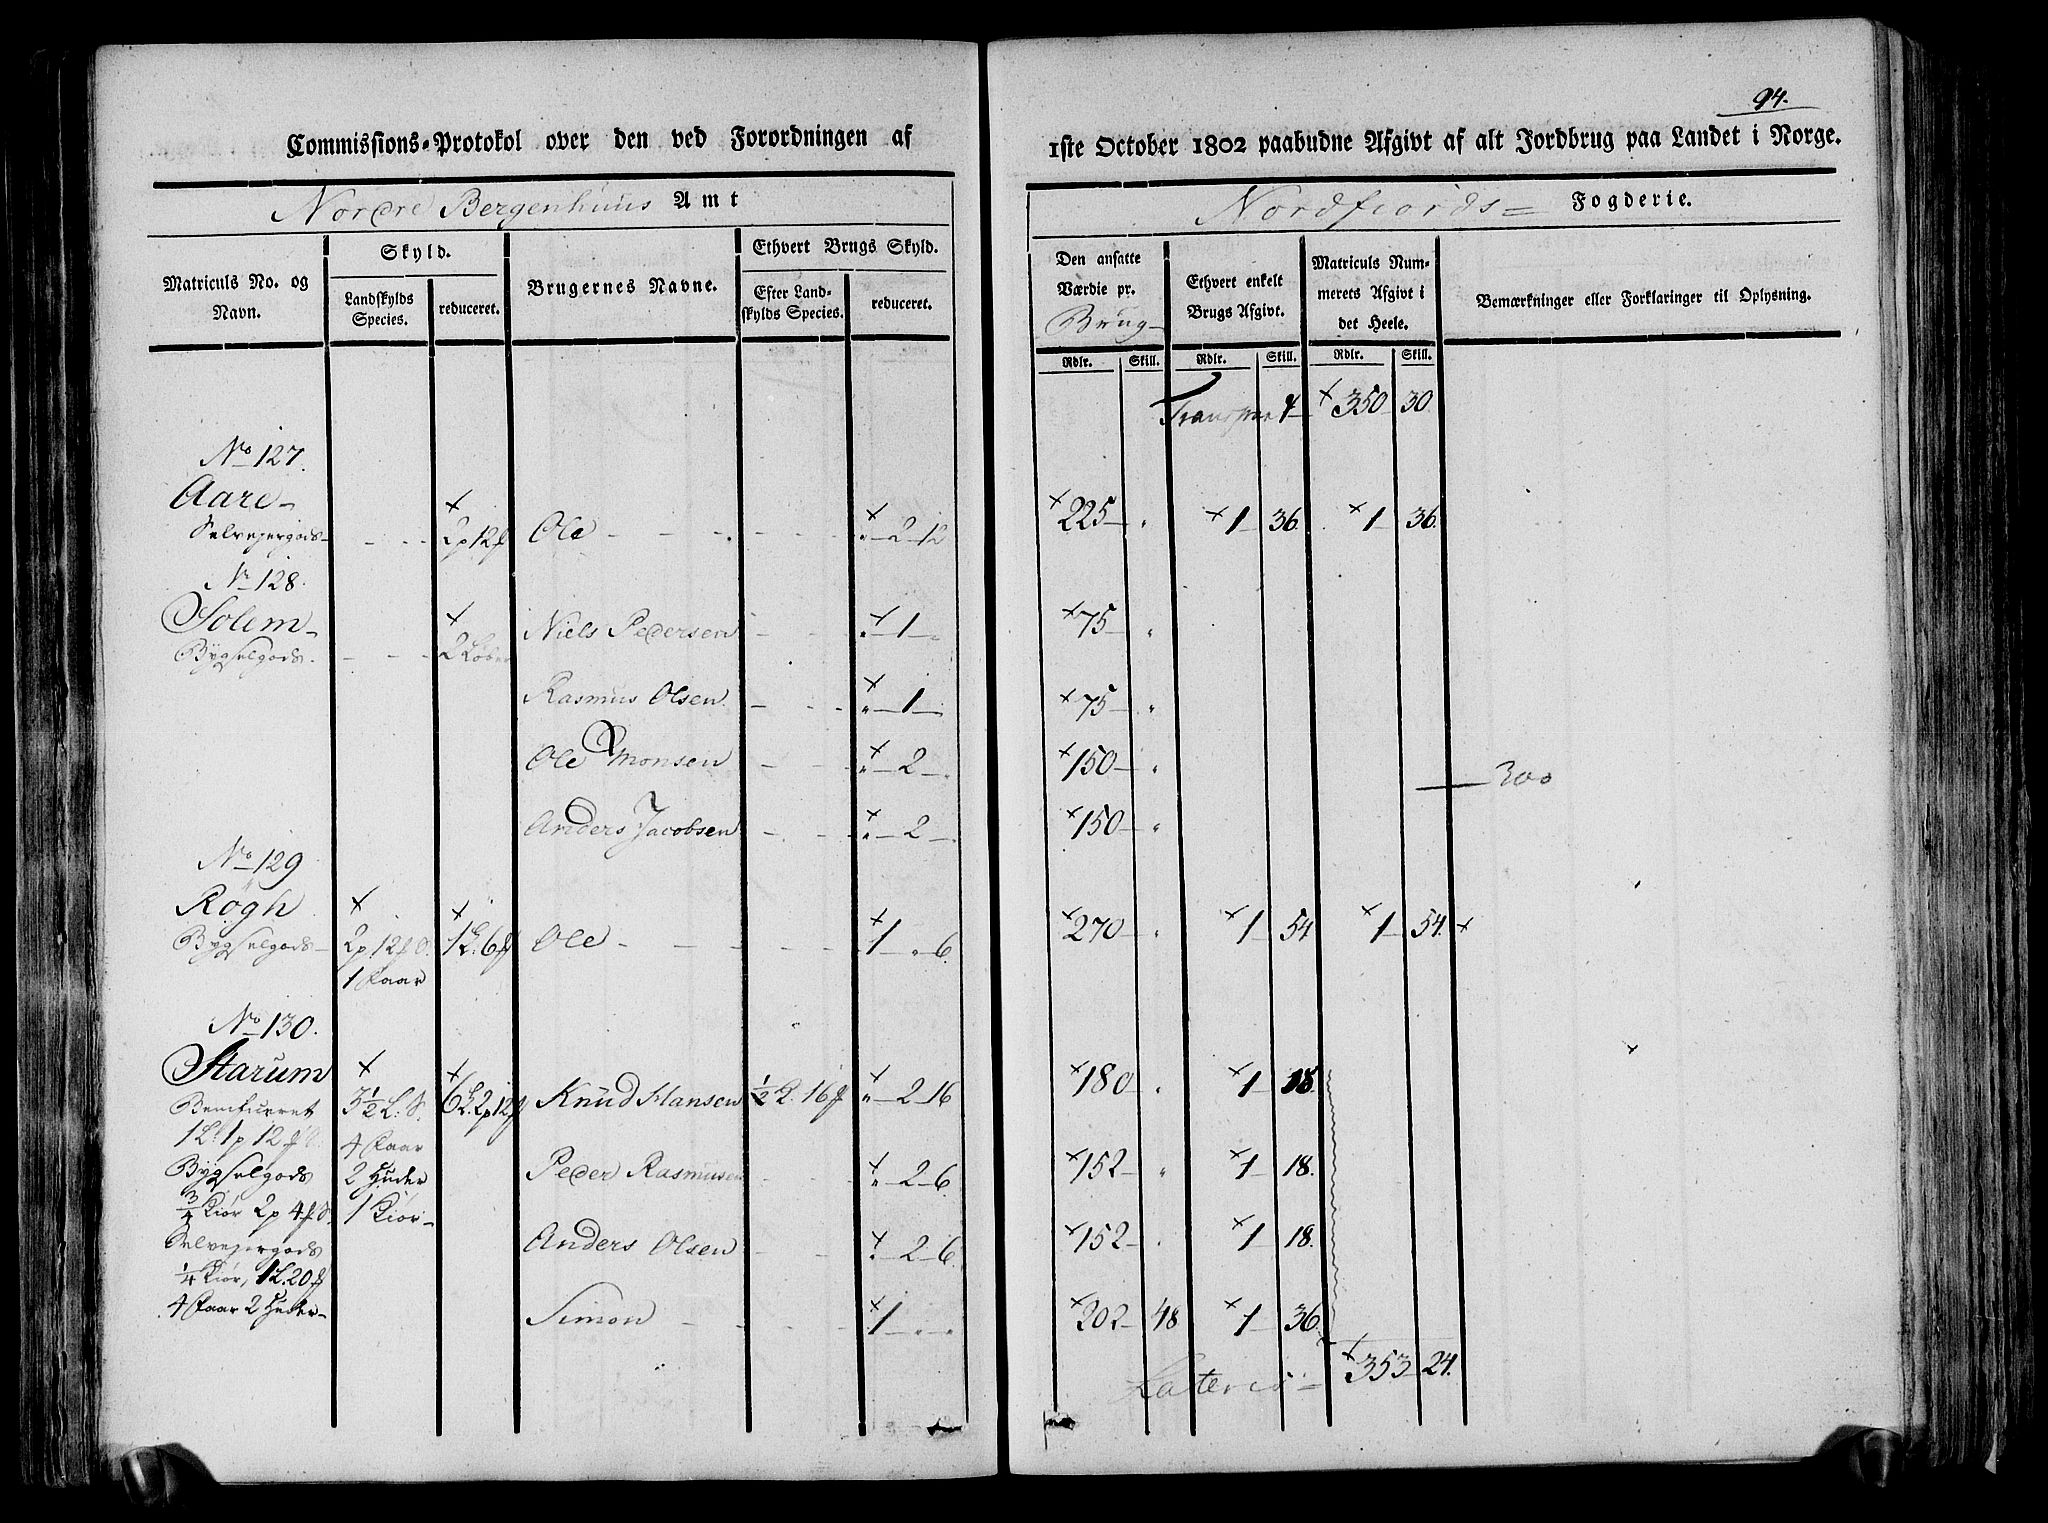 94.
Commissions-Protokol over den ved Forordningen af 1ste October 1802 paabudne Afgivt af alt Jordbrug paa Landet i Norge.
Nordre Bergenhuus Amt
Nordfiords= Fogderie.
Matriculs No. og Navn.
Skyld.
Landskylds Species.
reduceret.
Brugernes Navne.
Ethvert Brugs Skyld.
Efter Landskylds Species.
reduceret.
Den ansatte Værdie pr. Brug
Rdlr. Skill.
Ethvert enkelt Brugs Afgivt.
Rdlr. Skill.
Matriculs Nummerets Afgivt i det Heele.
Rdlr. Skill.
Bemærkninger eller Forklaringer til Oplysning.
Transport × 350 30.
No 127.
Aare
Selvejergods × 2p 12 Ole × " 2 12 × 225 " × 1 36. × 1 36.
No 128.
Solem
Bygselgods × 2 Løber Niels Pedersen × " 1 " × 75 "
Rasmus Olsen × " 1 × 75 "
Ole Monsen × " 2 " × 150 "
300
Anders Jacobsen × " 2 × 150 "
No 129
Røgh
Bygselgods × 2p. 12 × 1L. 6 Ole × 1 " 6. × 270 " × 1 54 × 1 54. ×
1 Faar
No 130.
Starum
Beneficeret × 3½ L: S. × 6L. 2p 12 Knud Hansen ½ L. 16 × " 2 16 × 180 " × 1 18.
1L. 1p 12
4 Faar
Bygselgods 2 Huder Peder Rasmusen × " 2 6. × 152 " × 1 18.
¾ Kiør 2p 4 S. 1 Kiør
Selvejergods Anders Olsen × " 2 6. × 152 " × 1 18.
¼ Kiør, 1L. 20
4 Faar 2 Huder Simon × 1 " " × 202 48 × 1 36.
Lateris × 353 24.